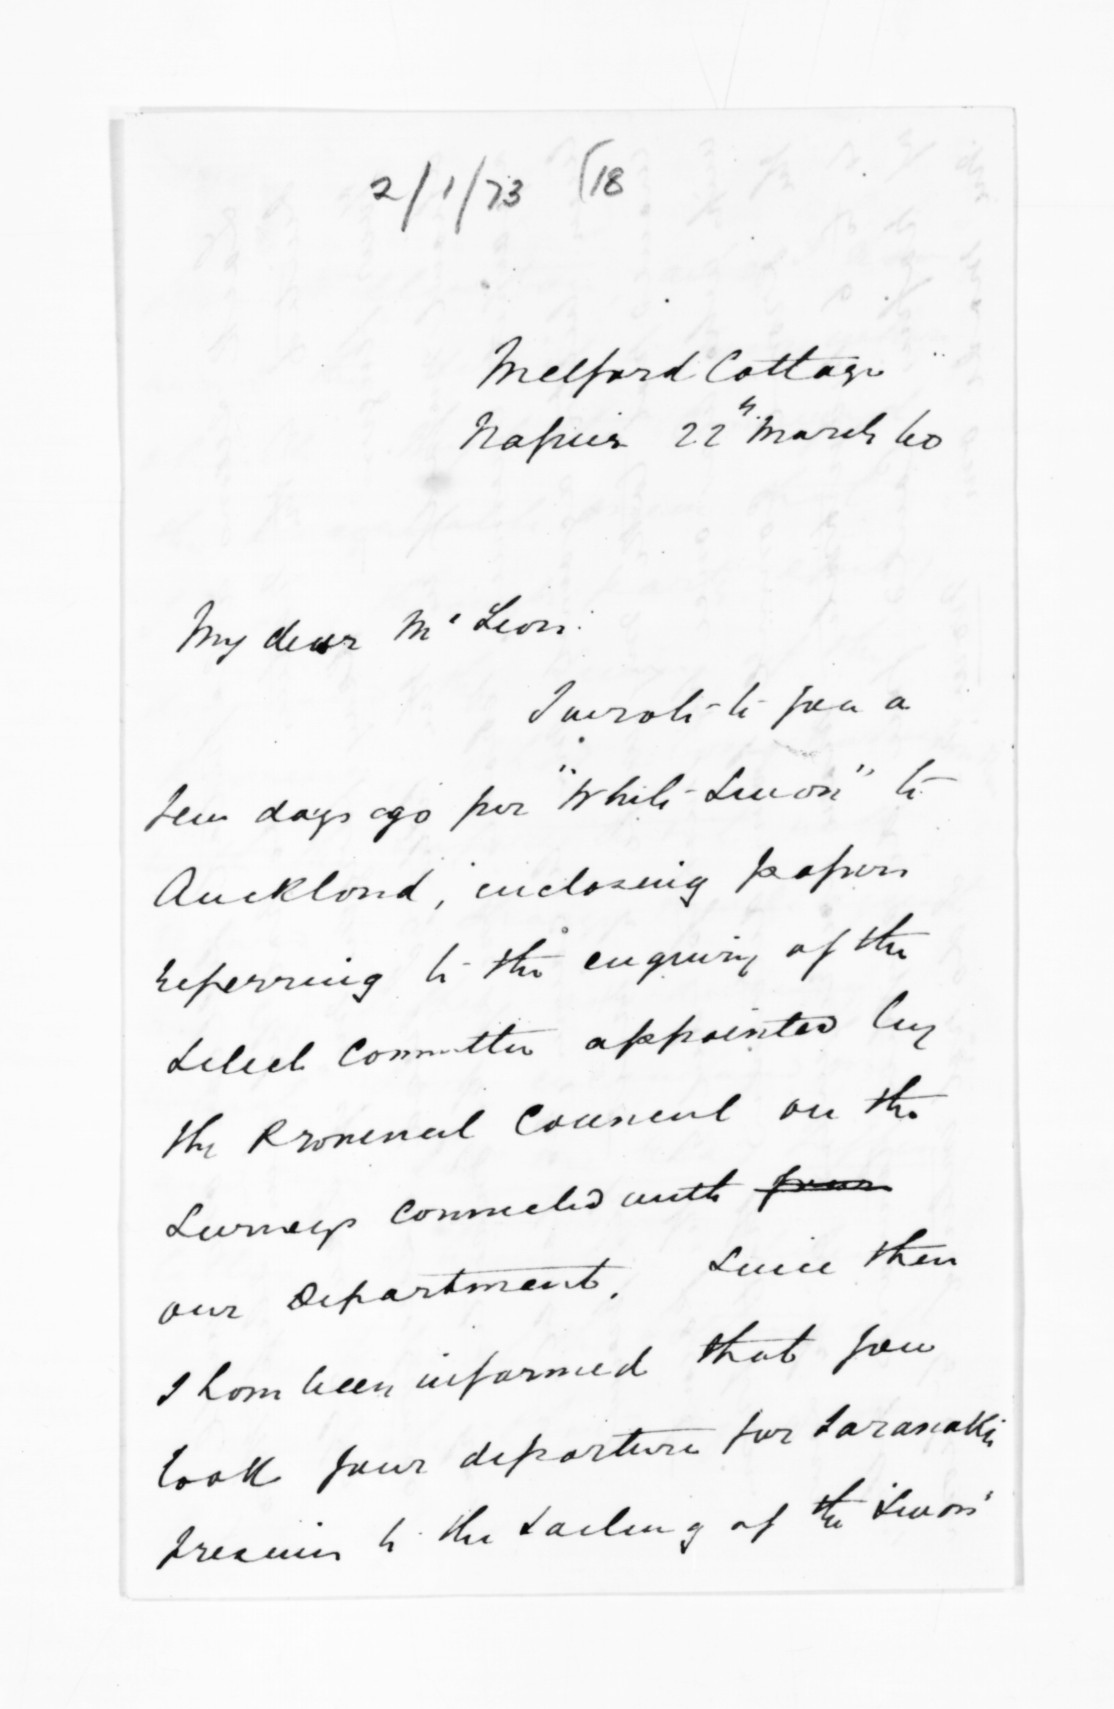 2/1/73 (18
Melford Cottage
Napier 22nd March 60
My dear Mc Lean.
I wrote to you a
few days ago per "White Swan" to
Auckland, inclosing papers
referring to the enquiry of the
Select Committee appointed by
the Provincial Council on the
Surveys connected with
our Department. Since then
I have been informed that you
took your departure for Taranaki
previous to the sailing of the 'Swan'